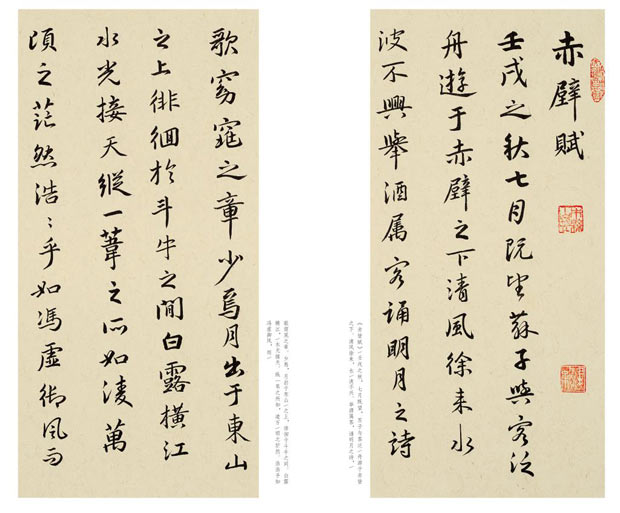 赤壁賦
壬戌之秋七月既望蘇子與客泛
舟遊于赤壁之下清風徐来水
波不興舉酒属客誦明月之詩
歌窈窕之章少焉月出于東山
之上徘徊於斗牛之間白露横江
水光接天縱一葦之所如淩萬
頃之茫然浩〻乎如馮虚御風而